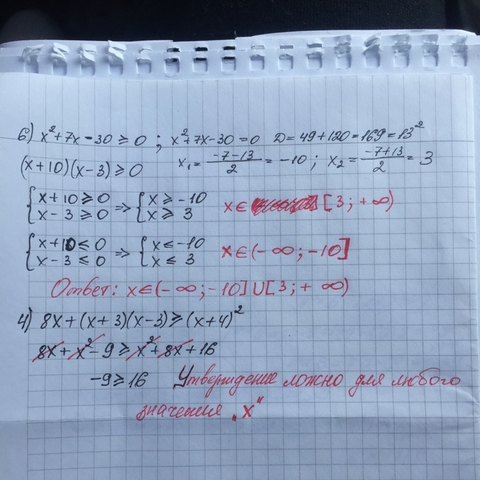 6) x²+7x-30≥0 ; x²+7x-30=0 D=49+120=169=13²
(x+10)(x-3)≥0 x₁= (-7-13)/2 =-10 ; x₂= (-7+13)/2 = 3
{ x+10≥0 => { x≥-10
x-3≥0 x≥3 x∈ [3;+∞)
{ x+10≤0 => { x≤-10
x-3≤0 x≤3 x∈(-∞;-10]
Ответ: x∈(-∞;-10]U[3;+∞)
4) 8x+(x+3)(x-3)≥(x+4)²
8x+x²-9≥x²+8x+16
-9≥16 Утверждение ложно для любого
значения „x"